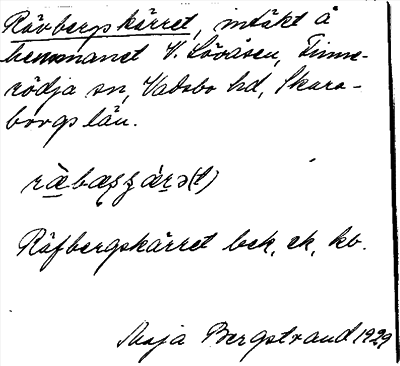 Rävbergskärret, intäkt å
hemmanet V. Lövåsen, Finne-
rödja sn, Vadsbo hd, Skara-
borgs län.
Räfbergskärret bck, ek, kb.
Maja Bergstrand 1929